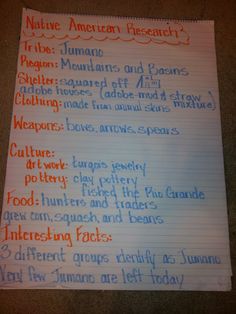 Native American Research
Tribe: Jumano
Region: Mountains and Basins
Shelter: squared off
adobe houses (adobe=mud & straw mixture)
Clothing: made from animal skins
Weapons: bows, arrows, spears
Culture:
artwork: turqois jewelry
pottery: clay pottery
fished the Rio Grande
Food: hunters and traders
grew corn, squash, and beans
Interesting Facts:
3 different groups identify as Jumano
Very few Jumano are left today